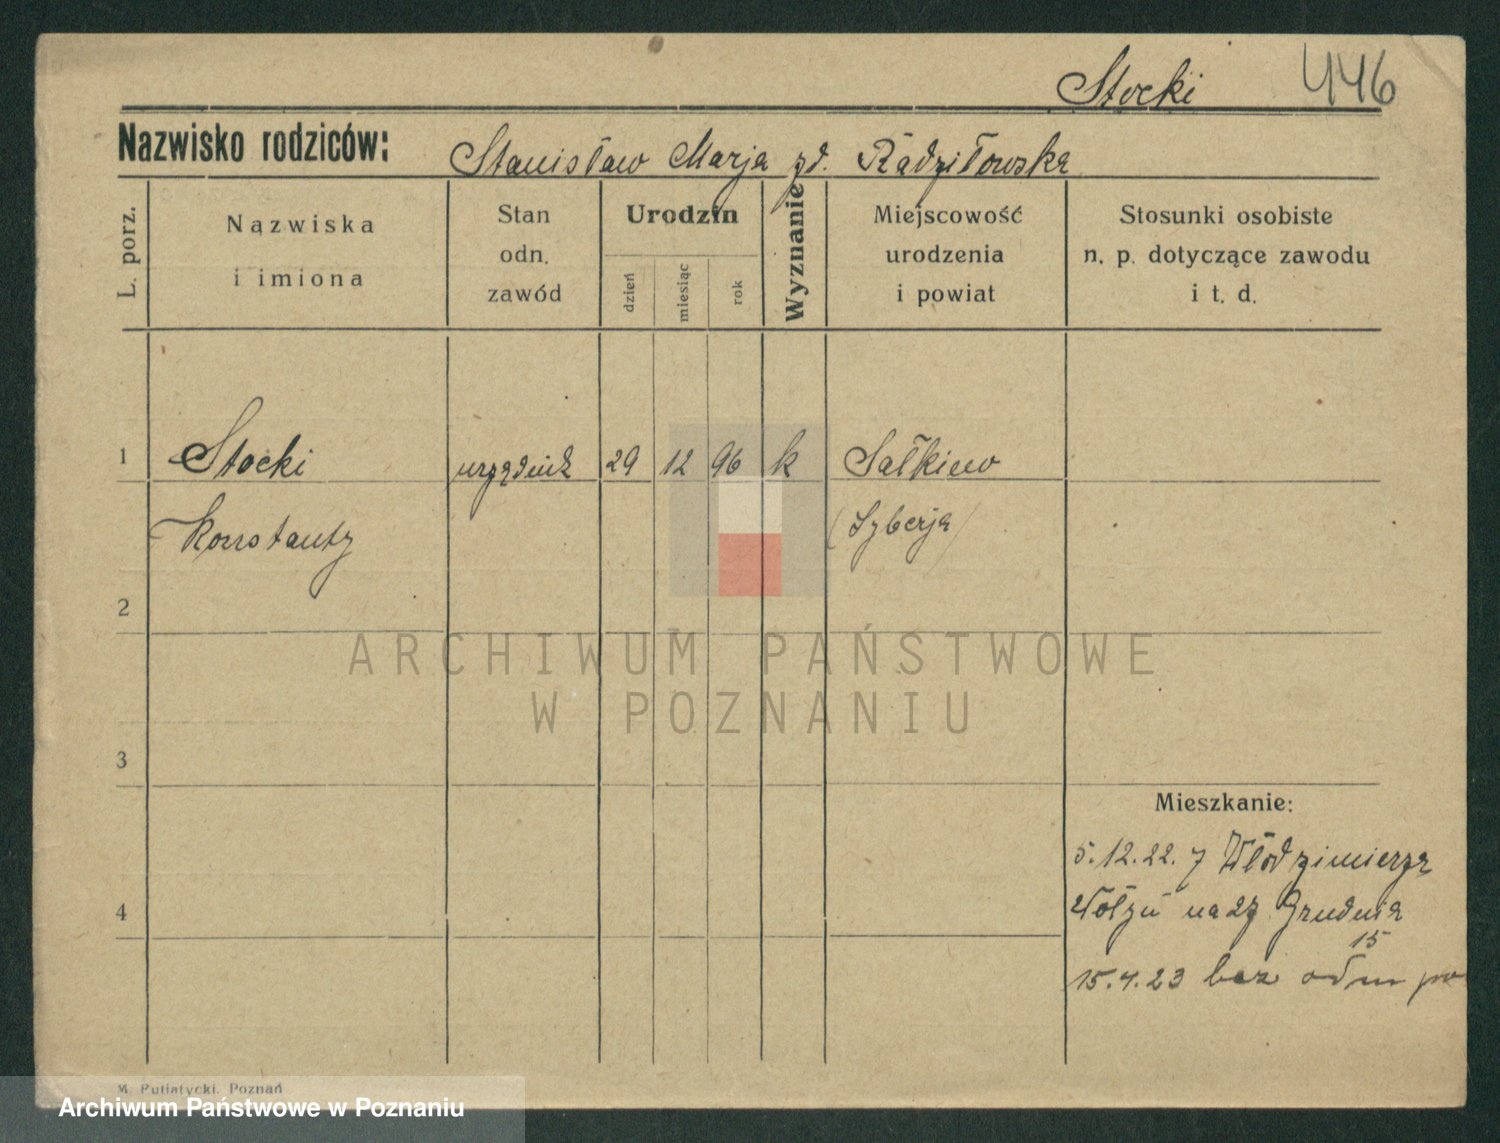 Stocki 446
Nazwisko rodziców: Stanisław Marja zd. Radziłowska
L. porz.
Nazwiska i imiona
Stan odn. zawód
Urodzin
dzień miesiąc rok
Wyznanie
Miejscowość urodzenia i powiat
Stosunki osobiste n. p. dotyczące zawodu i t. d.
1 Stocki urzędnik 29 12 96 k Sałkiewo
Konstanty (Syberja)
2
ARCHIWUM PAŃSTWOWE
W POZNANIU
3
Mieszkanie:
5.12.22. z Włodzimierza
4 Wołyń na 27 Grudnia
15
15.4.23 bez odm
M. Putiatycki, Poznań
Archiwum Państwowe w Poznaniu